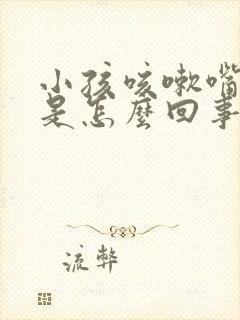 小孩咳嗽嘴
是怎麼回事
流弊